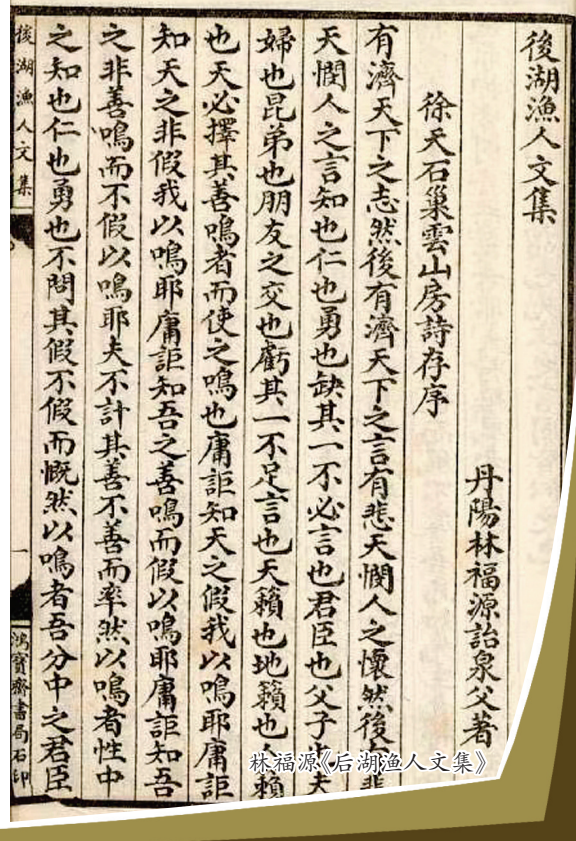 後湖漁人文集
丹陽林福源詒泉父著
徐天石巢雲山房詩存序
有濟天下之志然後有濟天下之言有悲天憫人之懷然後
天憫人之言知也仁也勇也缺其一不必言也君臣也父子也夫
婦也昆弟也朋友之交也虧其一不足言也天籟也地籟也人籟
也天必擇其善鳴者而使之鳴也庸詎知天之假我以鳴耶庸詎
知天之非假我以鳴耶庸詎知吾之善鳴而假以鳴耶庸詎知吾
之非善鳴而不假以鳴耶夫不計其善不善而率然以鳴者性中
之知也仁也勇也不問其假不假而慨然以鳴者吾分中之君臣
後湖漁人文集
一
鴻寶齋書局石印
林福源《后湖渔人文集》